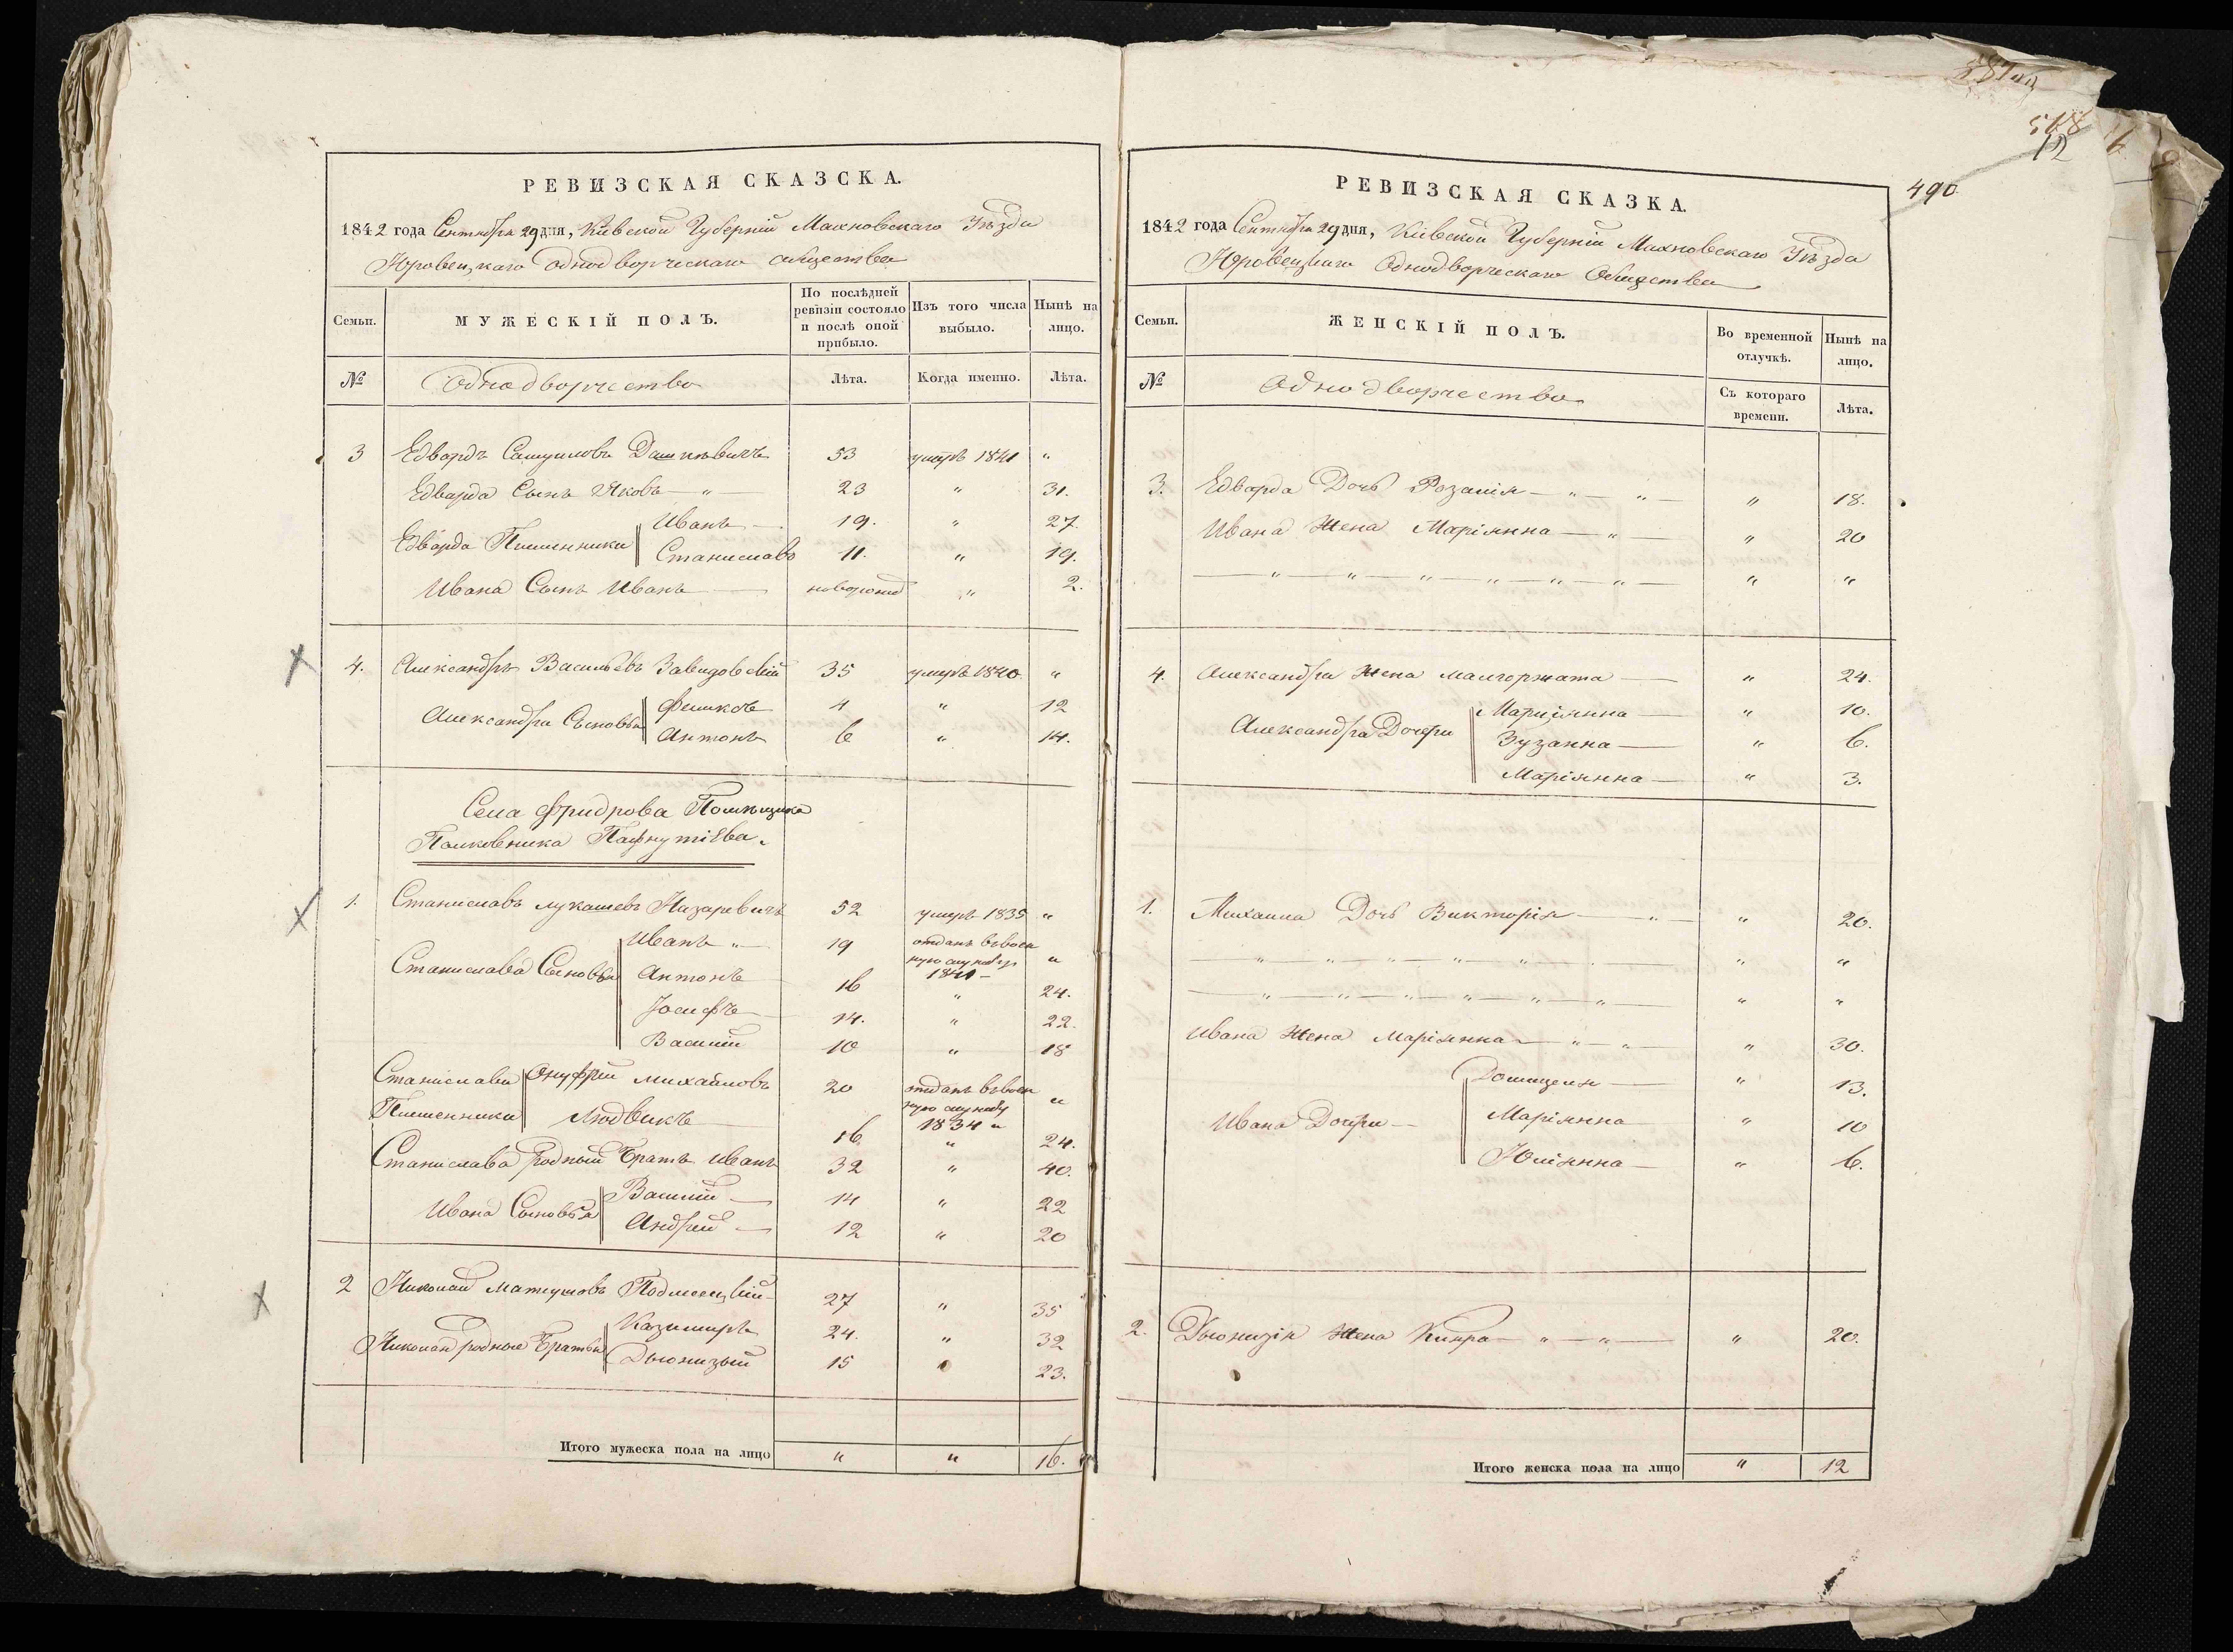 РЕВИЗСКАЯ СКАЗСКА.
1842 года Сентября 29 дня, Кіевской Губерніи Махновскаго Уѣзда
Юровецкаго однодворческаго общества
Семьи.
МУЖЕСКІЙ ПОЛЪ.
По послѣдней ревизіи состояло и послѣ оной прибыло.
Изъ того числа выбыло.
Нынѣ на лицо.
№
Однодворчество
Лѣта.
Когда именно.
Лѣта.
3 Едвардъ Самуиловъ Дашкѣвичъ 53 умерѣ 1841 "
Едварда Сынъ Яковъ — " — 23 " 31.
Едварда Племенники Иванъ — 19. " 27.
Станиславъ 11. " 19.
Ивана Сынъ Иванъ — новорожд " 2.
4. Александръ Васильевъ Завидовскій 35 умеръ 1840 "
Александра Сыновья Феликсъ 4 " 12
Антонъ 6 " 14.
Села Фридрова Помѣщика
Полковника Пафнутіева.
1. Станиславъ Лукашевъ Назаревичъ 52 умеръ 1835 "
Станислава Сыновья Иванъ " — 19 отданъ в воен
ную службу
1841 — "
Антонъ 16 " 24.
Іосифъ 14. " 22.
Василій 10 " 18
Станислава Племенники Онуфрій Михайловъ 20 отданъ в воен
ную службу
1834 " "
Людвикъ 16 " 24.
Станислава родный Братъ Иванъ 32 " 40.
Ивана Сыновья Василій — 14 " 22
Андрей — 12 " 20
2 Николай Матеушовъ Подлесцкій 27 " 35
Николая родные Братья Казимиръ 24. " 32
Дыонизый 15 " 23.
Итого мужеска пола на лицо " " 16.
587
518
12
490
РЕВИЗСКАЯ СКАЗКА.
1842 года Сентября 29 дня, Кіевской Губерніи Махновскаго Уѣзда
Юровецкаго Однодворческаго Общества
Семьи.
ЖЕНСКІЙ ПОЛЪ.
Во временной отлучкѣ.
Нынѣ на лицо.
№
Однодворчество
Съ котораго времени.
Лѣта.
3. Едварда Дочь Розалія — " — " — " 18.
Ивана Жена Маріянна — " — " 20
— " — " — " — " — " — " — " "
4. Александра Жена Малгоржата — " 24.
Александра Дочери Марціянна — " 10.
Зузанна — " 6.
Маріянна — " 3.
1. Михаила Дочь Викторія — " — " 20.
— " — " — " — " — " — " "
— " — " — " — " — " — " — " "
Ивана Жена Маріянна — " — " — " 30.
Ивана Дочери — Домицеля — " 13.
Маріянна " 10
Юліянна — " 6.
2. Дыонизія Жена Кикра — " — " — " 20.
Итого женска пола на лицо " 12